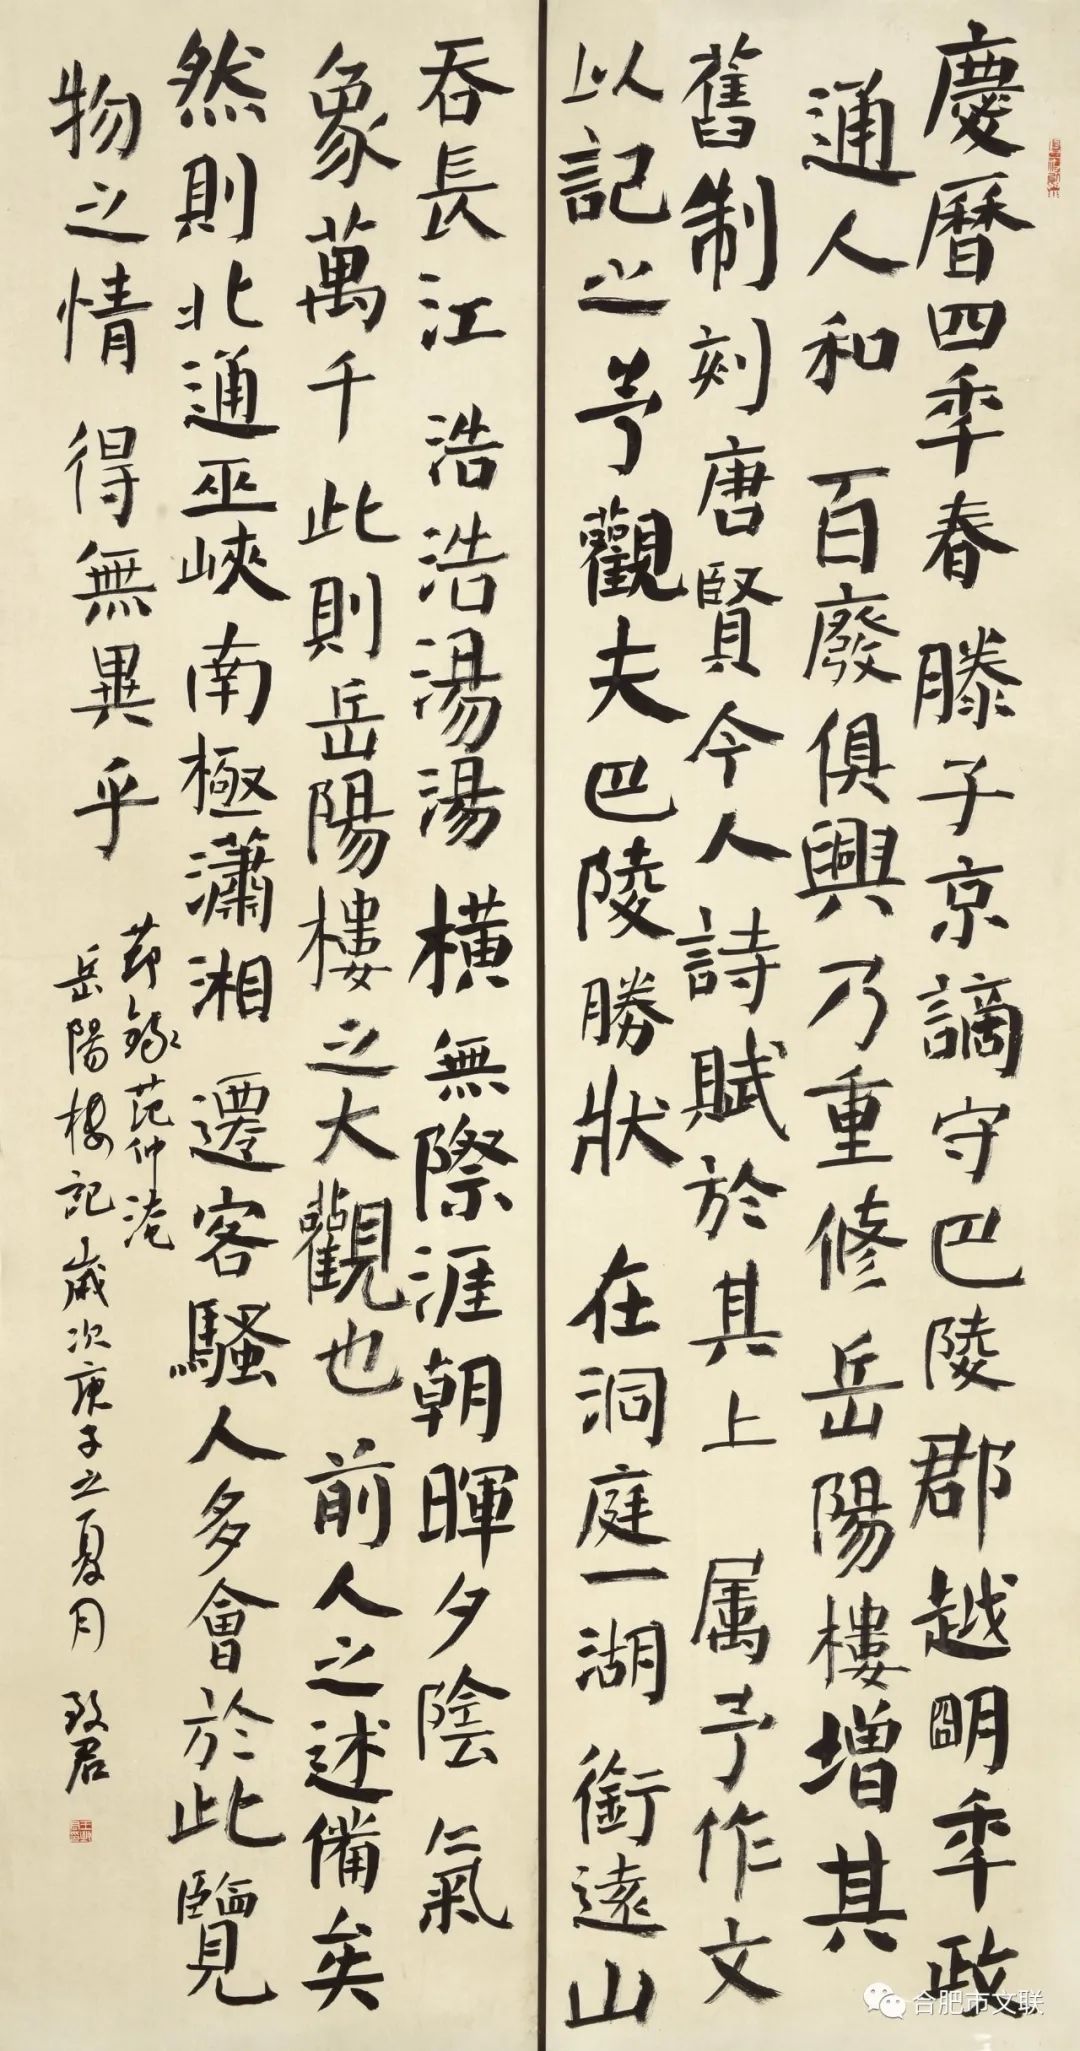 慶曆四年春滕子京謫守巴陵郡越明年政
通人和百廢俱興乃重修岳陽樓增其
舊制刻唐賢今人詩賦於其上属予作文
以記之予觀夫巴陵勝狀在洞庭一湖銜遠山
吞長江浩浩湯湯橫無際涯朝暉夕陰氣
象萬千此則岳陽樓之大觀也前人之述備矣
然則北通巫峽南極瀟湘遷客騷人多會於此覽
物之情得無異乎
節錄范仲淹
岳陽樓記歲次庚子之夏月致君
合肥市文联